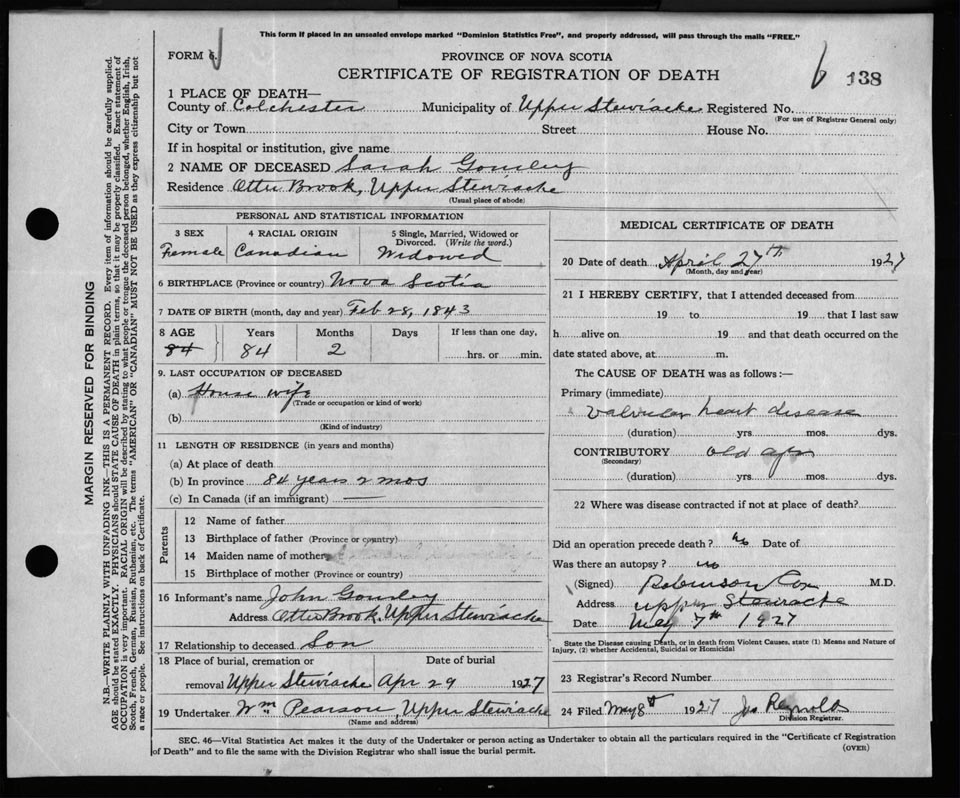 This form if placed in an unsealed envelope marked "Dominion Statistics Free", and properly addressed, will pass through the mails "FREE."
FORM 6.
PROVINCE OF NOVA SCOTIA
CERTIFICATE OF REGISTRATION OF DEATH
6 138
1 PLACE OF DEATH—
County of Colchester Municipality of Upper Stewiacke Registered No.
(For use of Registrar General only)
City or Town Street House No.
If in hospital or institution, give name
2 NAME OF DECEASED Sarah Gourley
Residence Otter Brook, Upper Stewiacke
(Usual place of abode)
PERSONAL AND STATISTICAL INFORMATION
3 SEX 4 RACIAL ORIGIN 5 Single, Married, Widowed or Divorced. (Write the word.)
Female Canadian Widowed
6 BIRTHPLACE (Province or country) Nova Scotia
7 DATE OF BIRTH (month, day and year) Feb 28, 1843
8 AGE Years Months Days If less than one day,
84 84 2 hrs. or min.
9. LAST OCCUPATION OF DECEASED
(a) House wife
(Trade or occupation or kind of work)
(b)
(Kind of industry)
11 LENGTH OF RESIDENCE (in years and months)
(a) At place of death
(b) In province 84 years 2 mos
(c) In Canada (if an immigrant) —
Parents
12 Name of father
13 Birthplace of father (Province or country)
14 Maiden name of mother
15 Birthplace of mother (Province or country)
16 Informant's name John Gourley
Address Otter Brook, Upper Stewiacke
17 Relationship to deceased Son
18 Place of burial, cremation or Date of burial
removal Upper Stewiacke Apr 29 1927
19 Undertaker Wm Pearson, Upper Stewiacke
(Name and address)
MEDICAL CERTIFICATE OF DEATH
20 Date of death April 27th 1927
(Month, day and year)
21 I HEREBY CERTIFY, that I attended deceased from
19 to 19 that I last saw
h alive on 19 and that death occurred on the
date stated above, at m.
The CAUSE OF DEATH was as follows :—
Primary (immediate)
Valvular heart disease
(duration) yrs. mos. dys.
CONTRIBUTORY old age
(Secondary)
(duration) yrs. mos. dys.
22 Where was disease contracted if not at place of death?
Did an operation precede death? no Date of
Was there an autopsy? no
(Signed) Robinson Cox M.D.
Address Upper Stewiacke
Date May 7th 1927
State the Disease causing Death, or in death from Violent Causes, state (1) Means and Nature of
Injury, (2) whether Accidental, Suicidal or Homicidal
23 Registrar's Record Number
24 Filed May 8 1927 Jas Reynolds
Division Registrar.
SEC. 46—Vital Statistics Act makes it the duty of the Undertaker or person acting as Undertaker to obtain all the particulars required in the "Certificate of Registration
of Death" and to file the same with the Division Registrar who shall issue the burial permit. (OVER)
MARGIN RESERVED FOR BINDING
N.B.—WRITE PLAINLY WITH UNFADING INK—THIS IS A PERMANENT RECORD. Every item of information should be carefully supplied.
AGE should be stated EXACTLY. PHYSICIANS should STATE CAUSE OF DEATH in plain terms, so that it may be properly classified. Exact statement of
OCCUPATION is very important. RACIAL ORIGIN will be described by stating to what people or tongue the deceased person belonged, whether English, Irish,
Scotch, French, German, Russian, Ruthenian, etc. The terms "AMERICAN" OR "CANADIAN" MUST NOT BE USED as they express citizenship but not
a race or people. See instructions on back of Certificate.